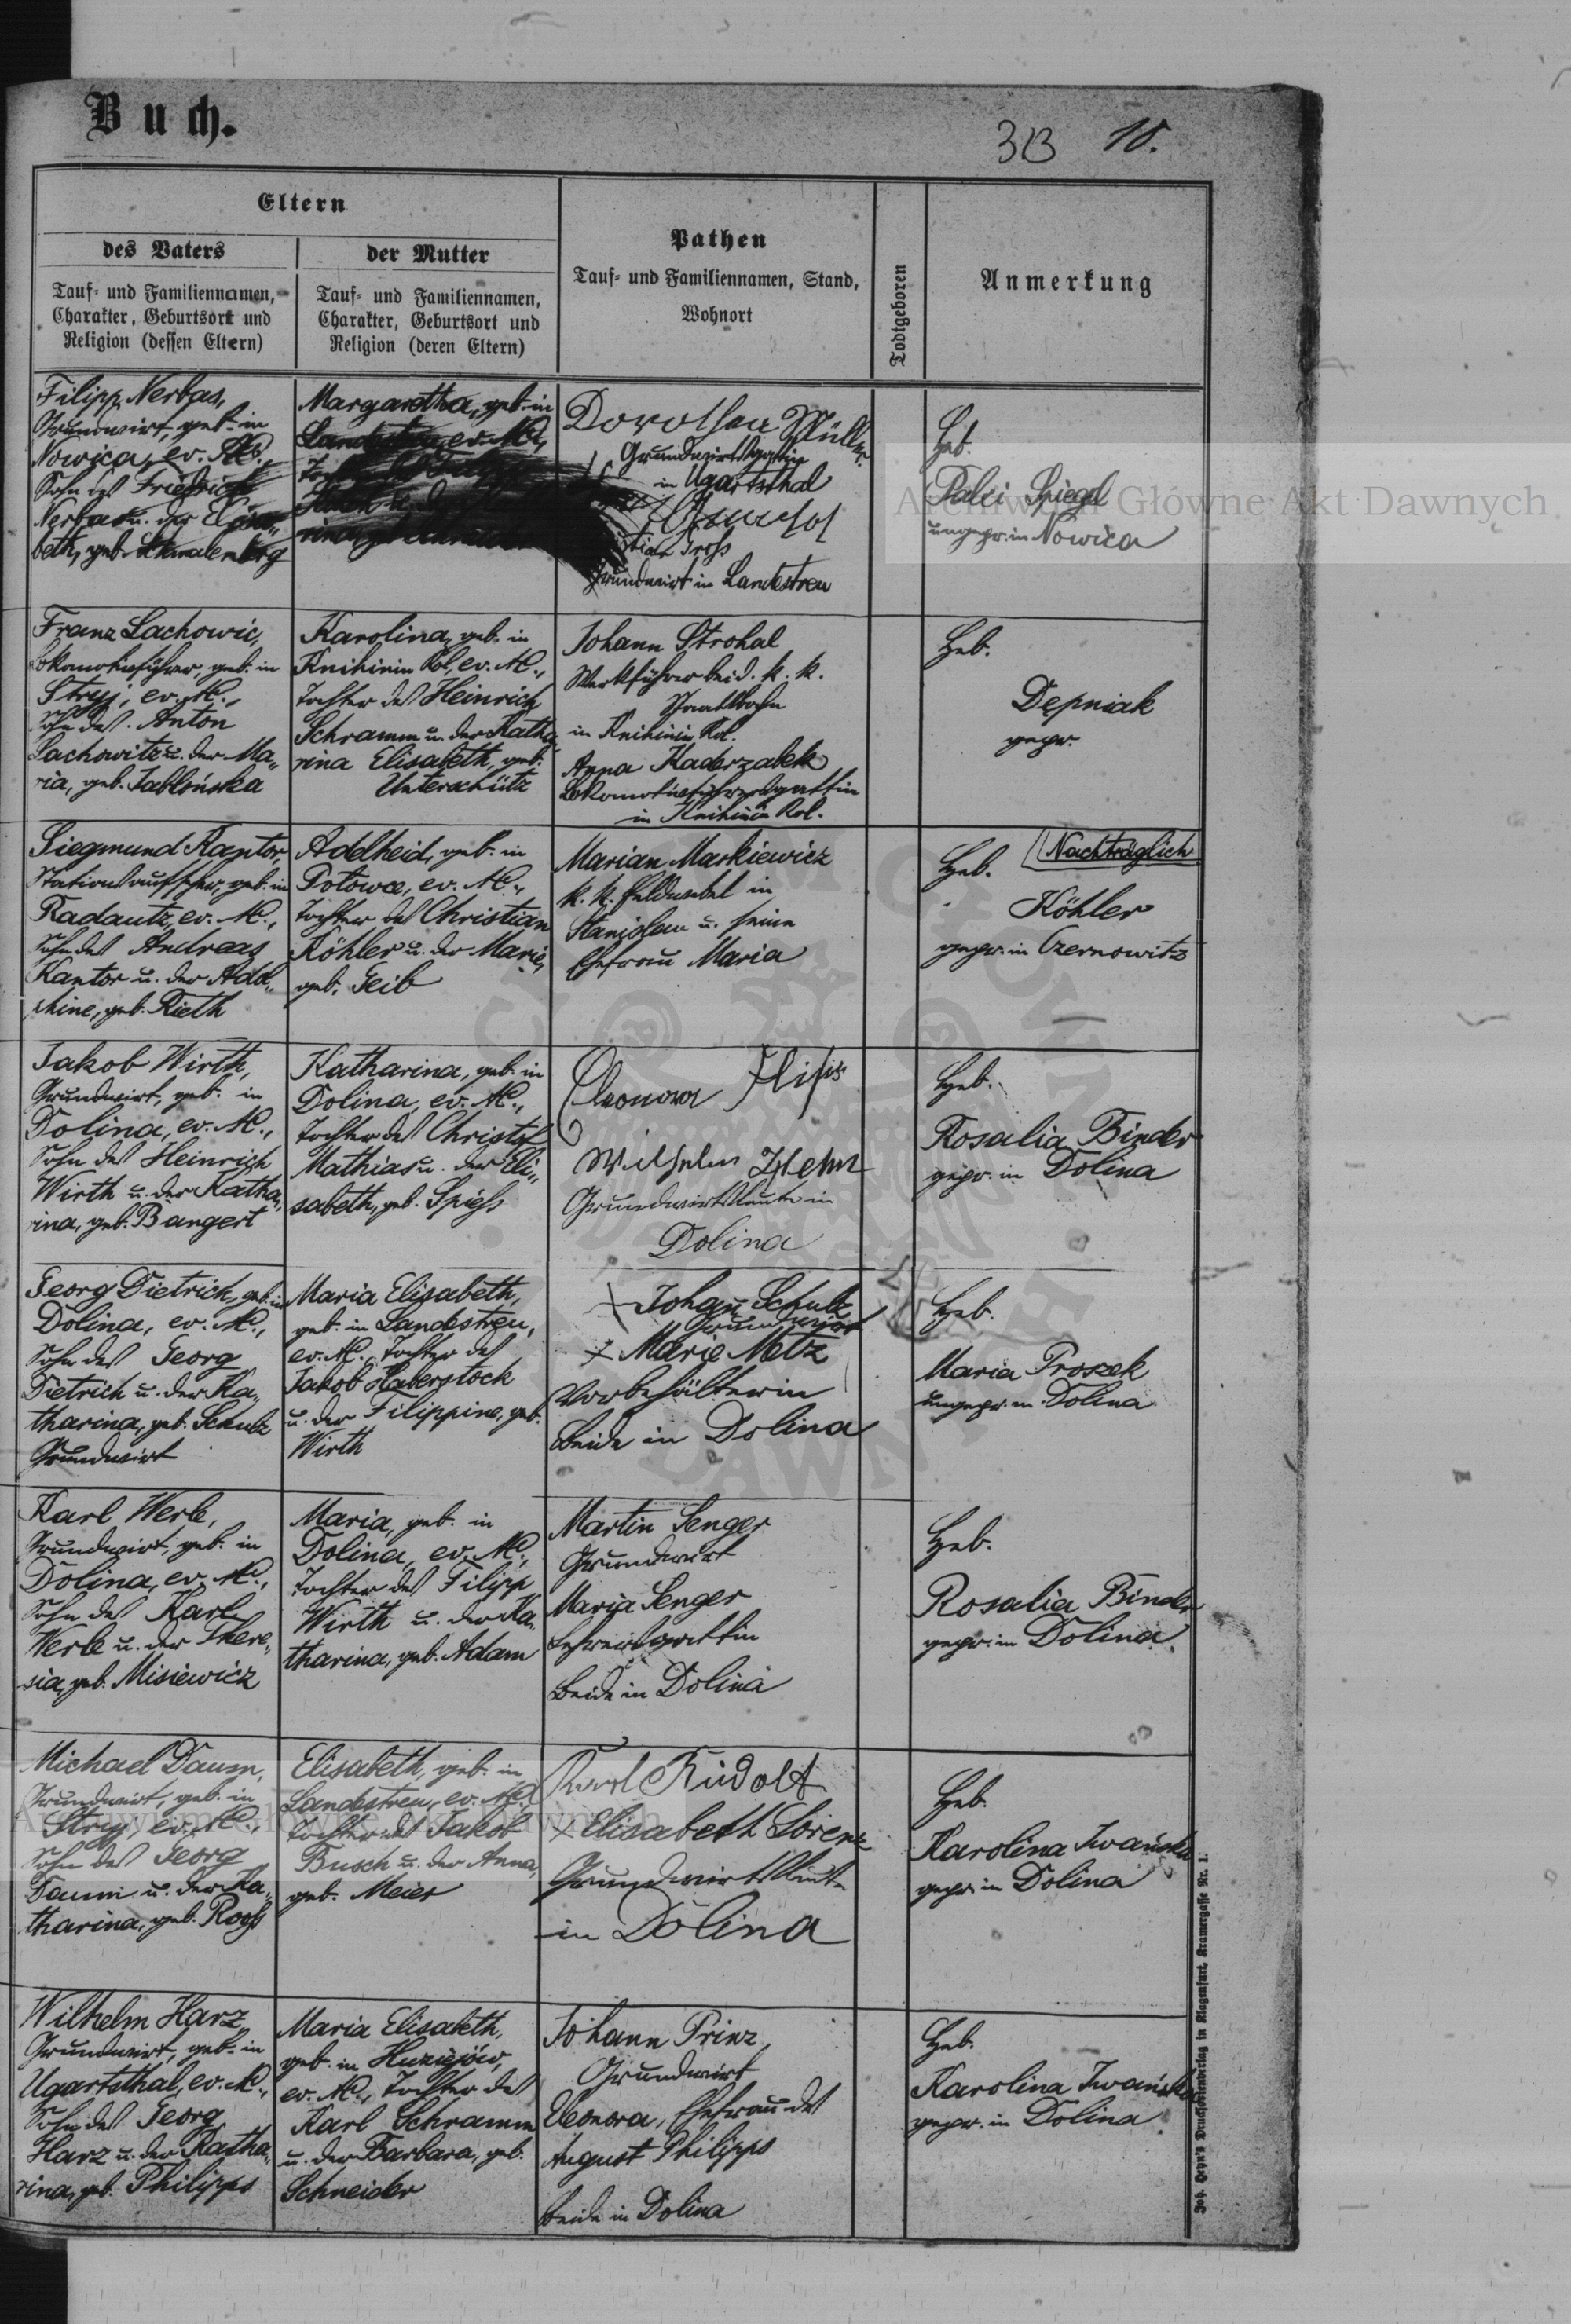 Buch.
313 18.
Eltern
des Vaters
Tauf- und Familiennamen,
Charakter, Geburtsort und
Religion (dessen Eltern)
der Mutter
Tauf- und Familiennamen,
Charakter, Geburtsort und
Religion (deren Eltern)
Pathen
Tauf- und Familiennamen, Stand,
Wohnort
Todtgeboren
Anmerkung
Filipp Nerbas,
Grundwirt, geb. in
Nowica, ev. AC.,
Sohn des Friedrich
Nerbas u. der Elisa-
beth, geb. Schmalenberg
Margaretha, geb. in
Landestreu, ev. AC.,
Dorothea Müller
Grundwirtsgattin
in Ugartsthal
Gross
Grundwirt in Landestreu
Heb.
Spiegel
ungepr. in Nowica
Franz Lachowic,
Lokomotivführer, geb. in
Stryj, ev. AC.,
Sohn des Anton
Lachowitz u. der Ma-
ria, geb. Jabłońska
Karolina, geb. in
Knihinin Kol, ev. AC.,
Tochter des Heinrich
Schramm u. der Katha
rina Elisabeth, geb.
Unterschütz
Johann Strohal
Werkführer bei d. k. k.
Staatsbahn
in Knihinin Kol.
Anna Kaderzabek
Lokomotivführersgattin
in Knihinin Kol.
Heb.
Depniak
gepr.
Siegmund Kantor,
Stationsaufseher, geb. in
Radautz, ev. AC.,
Sohn des Andreas
Kantor u. der Adel-
geb. Rieth
Adelheid, geb. in
ev. AC.,
Tochter des Christian
Köhler u. der Marie,
geb. Geib
Marian Maskiewicz
k. k. Feldwebel in
Stanislau u. seine
Ehefrau Maria
Heb. Nachträglich
Köhler
gepr. in Czernowitz
Jakob Wirth,
Grundwirt, geb. in
Dolina, ev. AC.,
Sohn des Heinrich
Wirth u. der Katha-
rina, geb. Bangert
Katharina, geb. in
Dolina, ev. AC.,
Tochter des Christof
Mathias u. der Eli-
sabeth, geb. Spieß
Eleonora
Wilhelm
Grundwirtsleute in
Dolina
Heb.
Rosalia Binder
gepr. in Dolina
Georg Dietrich, geb. in
Dolina, ev. AC.,
Sohn des Georg
Dietrich u. der Ka-
tharina, geb. Schulz
Grundwirt
Maria Elisabeth,
geb. in Landestreu,
ev. AC., Tochter des
Jakob Haberstock
u. der Filippine, geb.
Wirth
+ Johann Schulz
Grundwirt
+ Marie Metz
Vorbehälterin
beide in Dolina
Heb.
Maria Proszek
ungepr. in Dolina
Karl Werle,
Grundwirt, geb. in
Dolina, ev. AC.,
Sohn des Karl
Werle u. der There-
sia, geb. Misiewicz
Maria, geb. in
Dolina, ev. AC.,
Tochter des Filipp
Wirth u. der Ka-
tharina, geb. Adam
Martin Senger
Grundwirt
Maria Senger
Lehrersgattin
beide in Dolina
Heb.
Rosalia Binder
gepr. in Dolina
Michael Daum,
Grundwirt, geb. in
Stryj, ev. AC.,
Sohn des Georg
Daum u. der Ka-
tharina, geb. Rooß
Elisabeth, geb. in
Landestreu, ev. AC.,
Tochter des Jakob
Busch u. der Anna,
geb. Meier
Karl Rudolf
+ Elisabeth Lorenz
Grundwirtsleute
in Dolina
Heb.
Karolina Iwańska
gepr. in Dolina
Wilhelm Harz
Grundwirt, geb. in
Ugartsthal, ev. AC.,
Sohn des Georg
Harz u. der Katha-
rina, geb. Philipps
Maria Elisabeth,
geb. in Huziejów,
ev. AC., Tochter des
Karl Schramm
u. der Barbara, geb.
Schneider
Johann Prinz,
Grundwirt
Eleonora, Ehefrau des
August Philipps
beide in Dolina
Heb.
Karolina Iwańska
gepr. in Dolina
Joh. Heyn's Drucksortenverlag in Klagenfurt, Kramergasse Nr. 1.
Archiwum Główne Akt Dawnych
Archiwum Główne Akt Dawnych